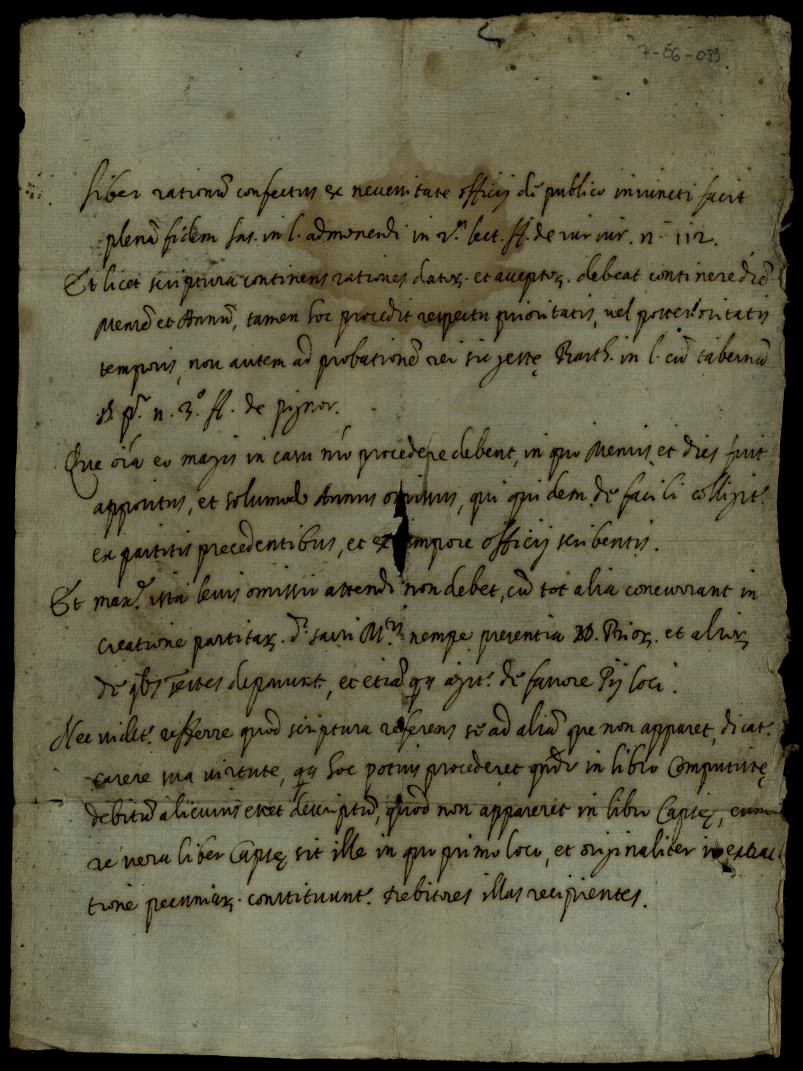 7-06-089
Liber rationũ confectus ex necessitate officij de publico iniuncti facit
plenã fidem Jas. in l. admonendi in 2.ª lect. ff. de iur iur. n. 112.
Et licet scriptura continens rationes datoꝝ. et acceptoꝝ. debeat continere diẽ
Mensẽ et Annũ, tamen hoc procedit respectu prioritatis, uel posterioritatis
temporis, non autem ad probationẽ rei sic gestę Barth. in l. cũ tabernã
n. 3.º ff. de pignor.
Que oĩa eo magis in casu nro procedere debent, in quo Mensis et dies fuit
appositus, et solumodo Annus omissus, qui quidem de facili colligit.ʳ
ex partitis precedentibus, et ex tempore officij scribentis.
Et max.ᵉ ista leuis omissio attendi non debet, cũ tot alia concurrant in
creatione partitaꝝ. d.ⁱ sacri M.ᵗⁱˢ nempe presentia DD. Prioꝝ. et alioꝝ
de qbs testes deponunt, et etiã qa agit.ʳ de fauore Pij loci.
Nec uidet.ʳ refferre quod scriptura referens se ad aliã que non apparet, dicat.ʳ
carere sua uirtute, qa hoc potius procederet qñdo in libro Computistę
debitũ alicuius esset descriptũ, quod non appareret in libro Capsę, cum
re uera liber Capsę sit ille in quo primo loco, et originaliter in extrac
tione pecuniaꝝ. constituunt.ʳ debitores illas recipientes.